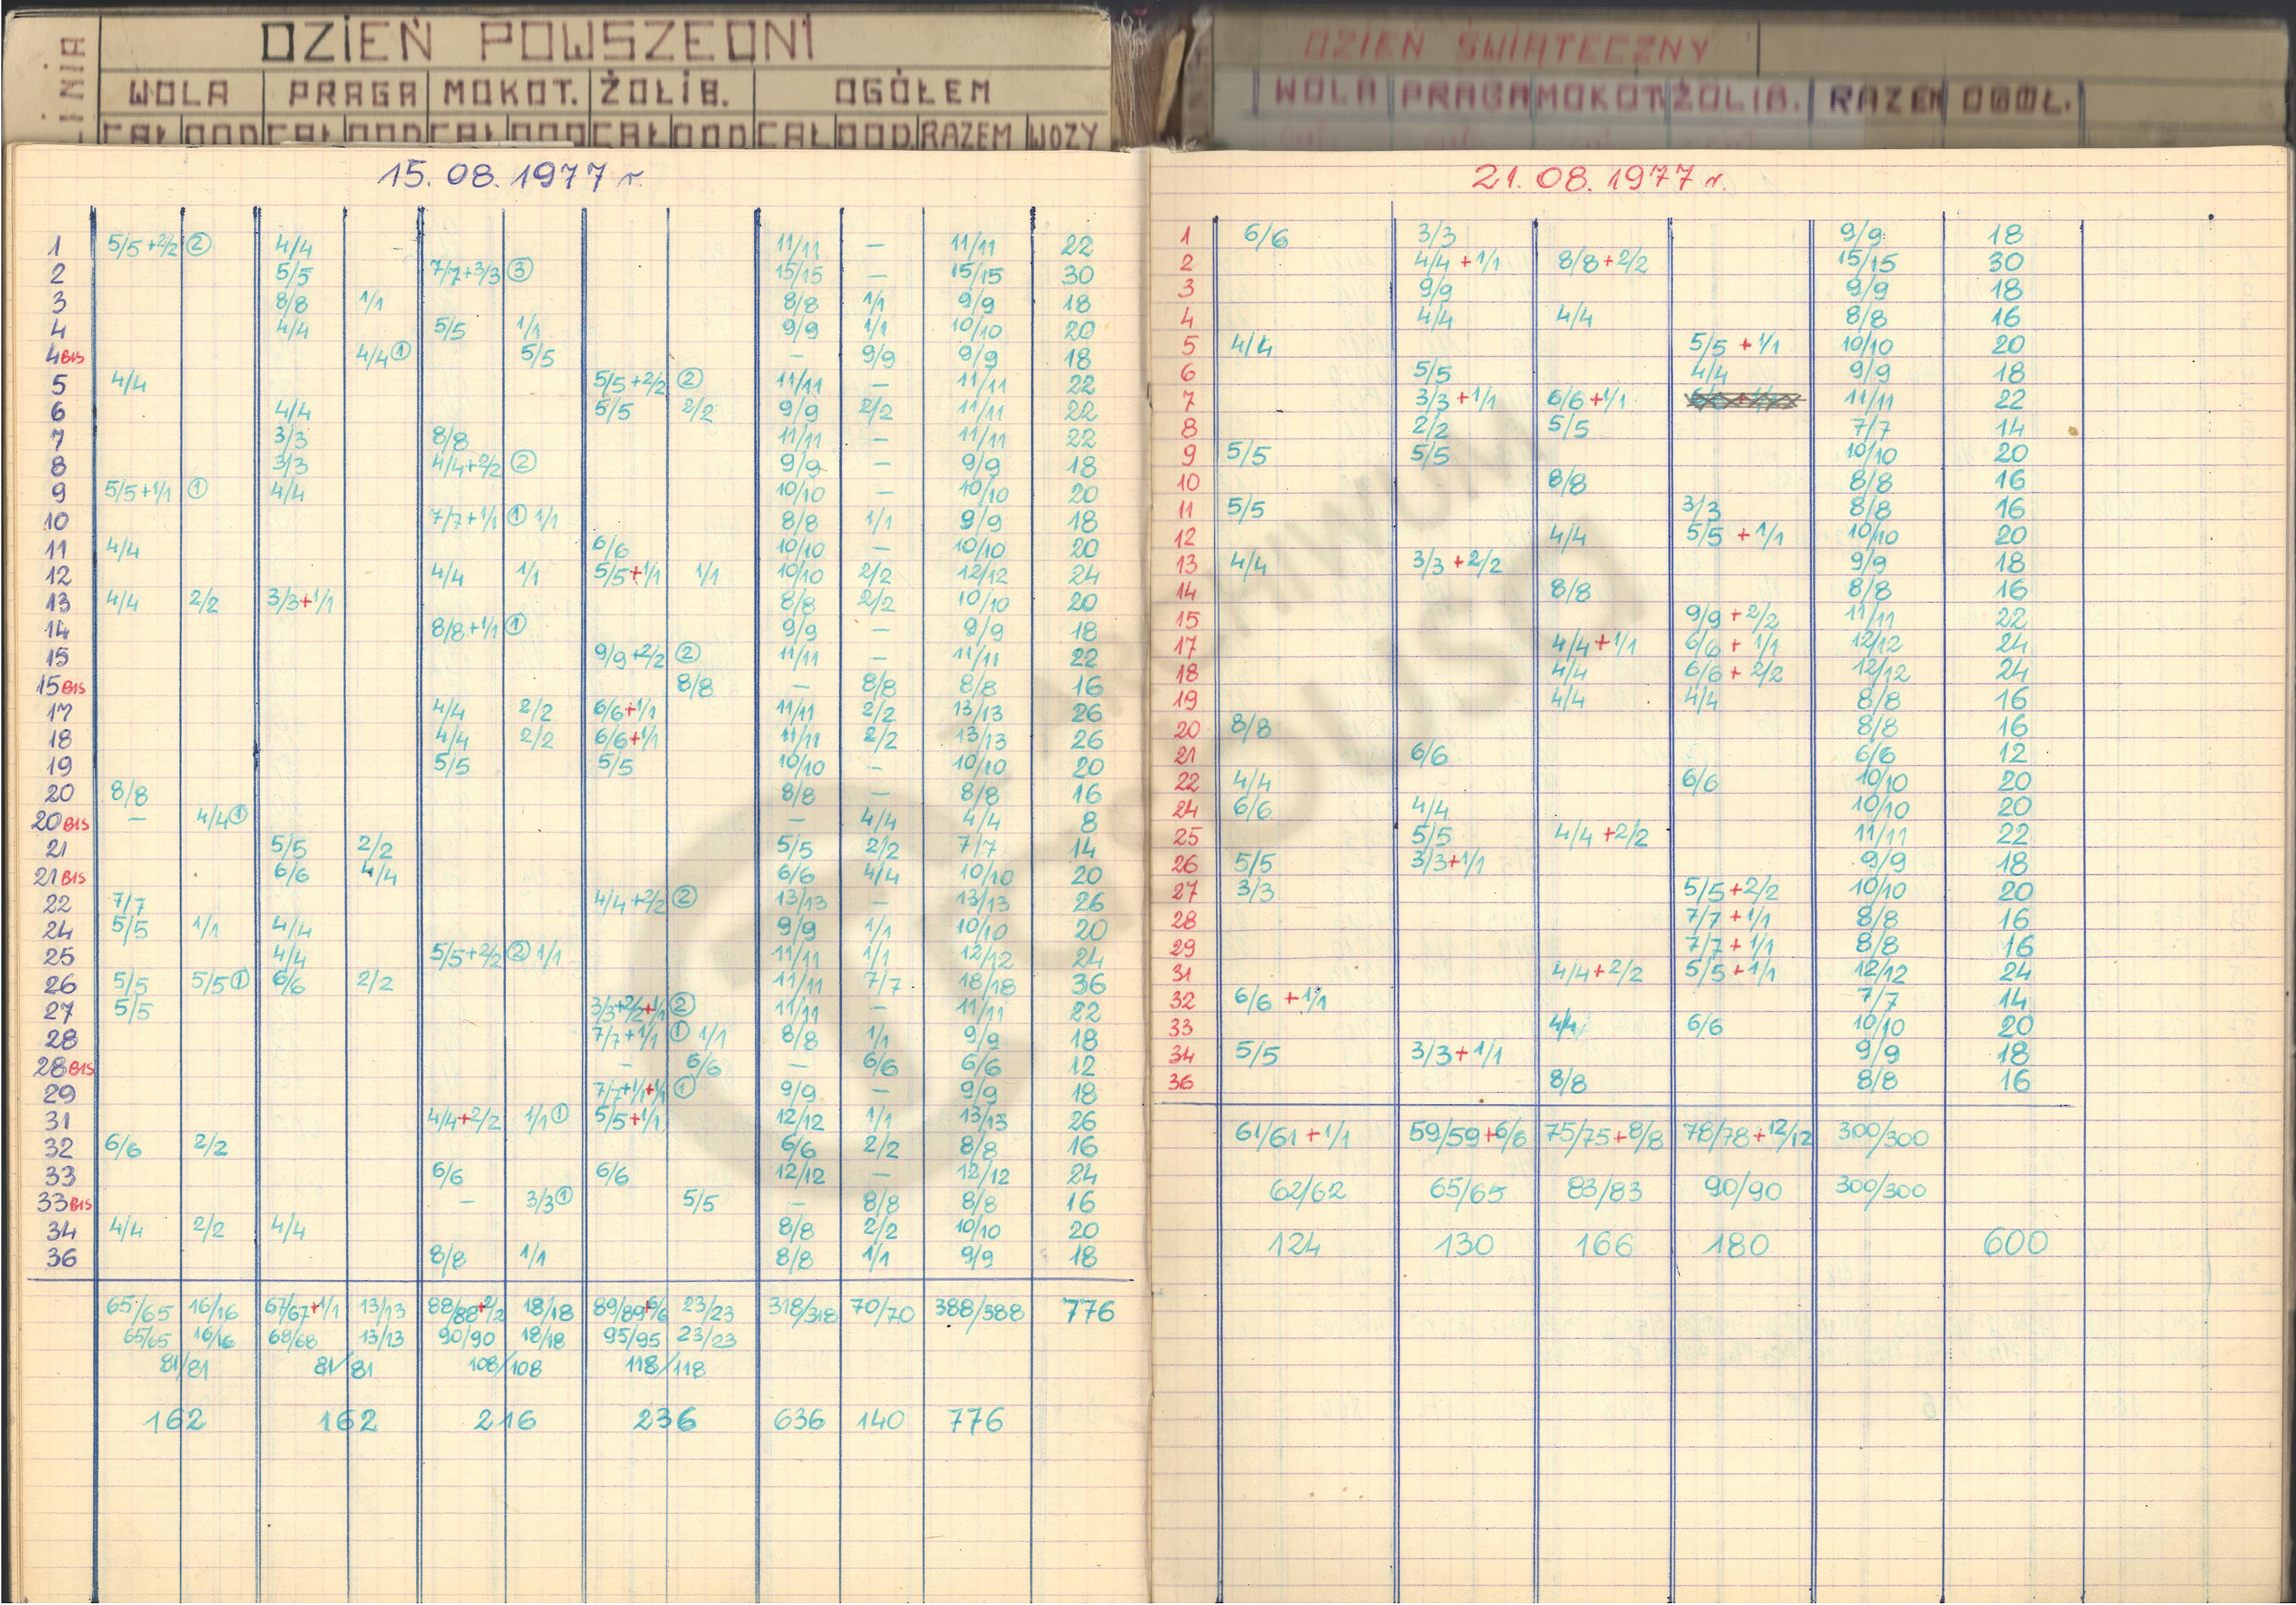 LINIA DZIEŃ POWSZEDNI
WOLA PRAGA MOKOT. ŻOLIB. OGÓŁEM
CAŁ DOD CAŁ DOD CAŁ DOD CAŁ DOD CAŁ DOD RAZEM WOZY
15.08.1977 r.
1 5/5+2/2 ② 4/4 11/11 — 11/11 22
2 5/5 7/7+3/3 ③ 15/15 — 15/15 30
3 8/8 1/1 8/8 1/1 9/9 18
4 4/4 5/5 1/1 9/9 1/1 10/10 20
4BIS 4/4① 5/5 — 9/9 9/9 18
5 4/4 5/5+2/2 ② 11/11 — 11/11 22
6 4/4 5/5 2/2 9/9 2/2 11/11 22
7 3/3 8/8 11/11 — 11/11 22
8 3/3 4/4+2/2 ② 9/9 — 9/9 18
9 5/5+1/1 ① 4/4 10/10 — 10/10 20
10 7/7+1/1 ① 1/1 8/8 1/1 9/9 18
11 4/4 6/6 10/10 — 10/10 20
12 4/4 1/1 5/5+1/1 1/1 10/10 2/2 12/12 24
13 4/4 2/2 3/3+1/1 8/8 2/2 10/10 20
14 8/8+1/1 ① 9/9 — 9/9 18
15 9/9+2/2 ② 11/11 — 11/11 22
15BIS 8/8 — 8/8 8/8 16
17 4/4 2/2 6/6+1/1 11/11 2/2 13/13 26
18 4/4 2/2 6/6+1/1 11/11 2/2 13/13 26
19 5/5 5/5 10/10 — 10/10 20
20 8/8 8/8 — 8/8 16
20BIS — 4/4① — 4/4 4/4 8
21 5/5 2/2 5/5 2/2 7/7 14
21BIS 6/6 4/4 6/6 4/4 10/10 20
22 7/7 4/4+2/2 ② 13/13 — 13/13 26
24 5/5 1/1 4/4 9/9 1/1 10/10 20
25 4/4 5/5+2/2 ② 1/1 11/11 1/1 12/12 24
26 5/5 5/5① 6/6 2/2 11/11 7/7 18/18 36
27 5/5 3/3+2/2+1/1 ② 11/11 — 11/11 22
28 7/7+1/1 ① 1/1 8/8 1/1 9/9 18
28BIS — 6/6 — 6/6 6/6 12
29 7/7+1/1+1/1 ① 9/9 — 9/9 18
31 4/4+2/2 1/1① 5/5+1/1 12/12 1/1 13/13 26
32 6/6 2/2 6/6 2/2 8/8 16
33 6/6 6/6 12/12 — 12/12 24
33BIS — 3/3① 5/5 — 8/8 8/8 16
34 4/4 2/2 4/4 8/8 2/2 10/10 20
36 8/8 1/1 8/8 1/1 9/9 18
65/65 16/16 67/67+1/1 13/13 88/88+2/2 18/18 89/89+6/6 23/23 318/318 70/70 388/388 776
65/65 16/16 68/68 13/13 90/90 18/18 95/95 23/23
81/81 81/81 108/108 118/118
162 162 216 236 636 140 776
DZIEŃ ŚWIĄTECZNY
WOLA PRAGA MOKOT ŻOLIB. RAZEM OGÓŁ.
21.08.1977 r.
1 6/6 3/3 9/9 18
2 4/4+1/1 8/8+2/2 15/15 30
3 9/9 9/9 18
4 4/4 4/4 8/8 16
5 4/4 5/5+1/1 10/10 20
6 5/5 4/4 9/9 18
7 3/3+1/1 6/6+1/1 11/11 22
8 2/2 5/5 7/7 14
9 5/5 5/5 10/10 20
10 8/8 8/8 16
11 5/5 3/3 8/8 16
12 4/4 5/5+1/1 10/10 20
13 4/4 3/3+2/2 9/9 18
14 8/8 8/8 16
15 9/9+2/2 11/11 22
17 4/4+1/1 6/6+1/1 12/12 24
18 4/4 6/6+2/2 12/12 24
19 4/4 4/4 8/8 16
20 8/8 8/8 16
21 6/6 6/6 12
22 4/4 6/6 10/10 20
24 6/6 4/4 10/10 20
25 5/5 4/4+2/2 11/11 22
26 5/5 3/3+1/1 9/9 18
27 3/3 5/5+2/2 10/10 20
28 7/7+1/1 8/8 16
29 7/7+1/1 8/8 16
31 4/4+2/2 5/5+1/1 12/12 24
32 6/6+1/1 7/7 14
33 4/4 6/6 10/10 20
34 5/5 3/3+1/1 9/9 18
36 8/8 8/8 16
61/61+1/1 59/59+6/6 75/75+8/8 78/78+12/12 300/300
62/62 65/65 83/83 90/90 300/300
124 130 166 180 600